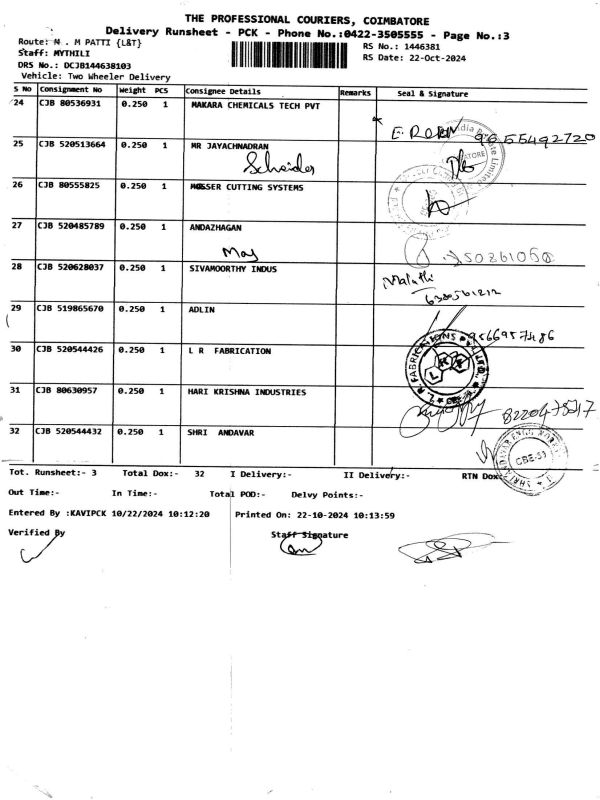 THE PROFESSIONAL COURIERS, COIMBATORE
Delivery Runsheet - PCK - Phone No.:0422-3505555 - Page No.:3
Route: N . M PATTI {L&T}
Staff: MYTHILI
DRS No.: DCJB144638103
Vehicle: Two Wheeler Delivery
RS No.: 1446381
RS Date: 22-Oct-2024
S No Consignment No Weight PCS Consignee Details Remarks Seal & Signature
24 CJB 80536931 0.250 1 MAKARA CHEMICALS TECH PVT
9655492720
25 CJB 520513664 0.250 1 MR JAYACHNADRAN
Scheider
STORE
26 CJB 80555825 0.250 1 MOSSER CUTTING SYSTEMS
27 CJB 520485789 0.250 1 ANDAZHAGAN
May
28 CJB 520628037 0.250 1 SIVAMOORTHY INDUS
Malathi
29 CJB 519865670 0.250 1 ADLIN
30 CJB 520544426 0.250 1 L R FABRICATION
L R FABRICATIONS
31 CJB 80630957 0.250 1 HARI KRISHNA INDUSTRIES
32 CJB 520544432 0.250 1 SHRI ANDAVAR
Tot. Runsheet:- 3 Total Dox:- 32 I Delivery:- II Delivery:- RTN Dox:
Out Time:- In Time:- Total POD:- Delvy Points:-
Entered By :KAVIPCK 10/22/2024 10:12:20 Printed On: 22-10-2024 10:13:59
Verified By Staff Signature